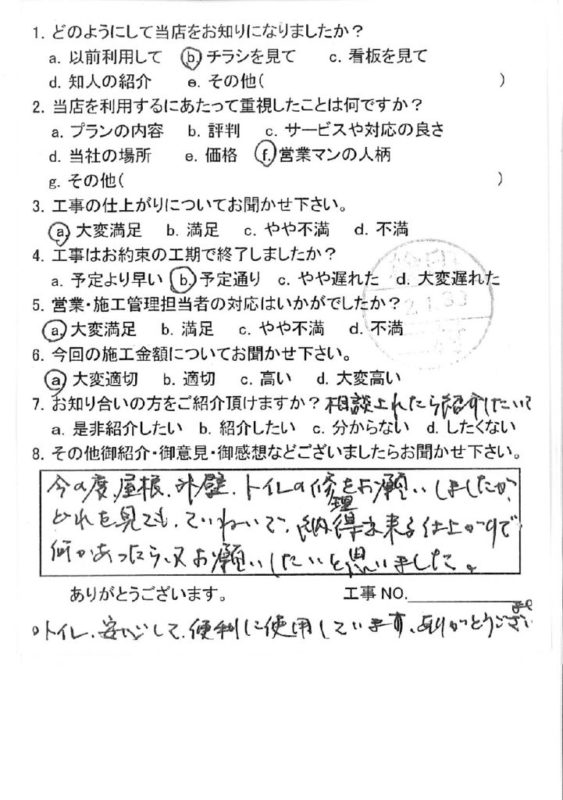 1. どのようにして当店をお知りになりましたか？
a. 以前利用して b. チラシを見て c. 看板を見て
d. 知人の紹介 e. その他( )
2. 当店を利用するにあたって重視したことは何ですか？
a. プランの内容 b. 評判 c. サービスや対応の良さ
d. 当社の場所 e. 価格 f. 営業マンの人柄
g. その他( )
3. 工事の仕上がりについてお聞かせ下さい。
a. 大変満足 b. 満足 c. やや不満 d. 不満
4. 工事はお約束の工期で終了しましたか？
a. 予定より早い b. 予定通り c. やや遅れた d. 大変遅れた
5. 営業・施工管理担当者の対応はいかがでしたか？
a. 大変満足 b. 満足 c. やや不満 d. 不満
6. 今回の施工金額についてお聞かせ下さい。
a. 大変適切 b. 適切 c. 高い d. 大変高い
7. お知り合いの方をご紹介頂けますか？相談されたら紹介したいで
a. 是非紹介したい b. 紹介したい c. 分からない d. したくない
8. その他御紹介・御意見・御感想などございましたらお聞かせ下さい。
今の度、屋根、外壁、トイレの修理をお願いしましたが、
どれを見ても、ていねいで、納得出来る仕上がりで
何かあったら、又お願いしたいと思いました。
ありがとうございます。 工事 NO.
。トイレ、安心して、便利に使用しています、ありがとうござい
ます